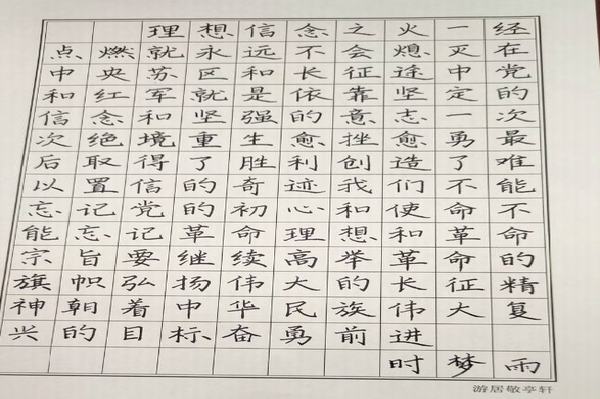 理想信念之火一经
点燃就永远不会熄灭在
中央苏区和长征途中党
和红军就是依靠坚定的
信念和坚强的意志一次
次绝境重生愈挫愈勇最
后取得了胜利创造了难
以置信的奇迹我们不能
忘记党的初心和使命不
能忘记革命理想和革命
宗旨要继续高举革命的
旗帜弘扬伟大的长征精
神朝着中华民族伟大复
兴的目标奋勇前进
时梦雨
游居敬亭轩